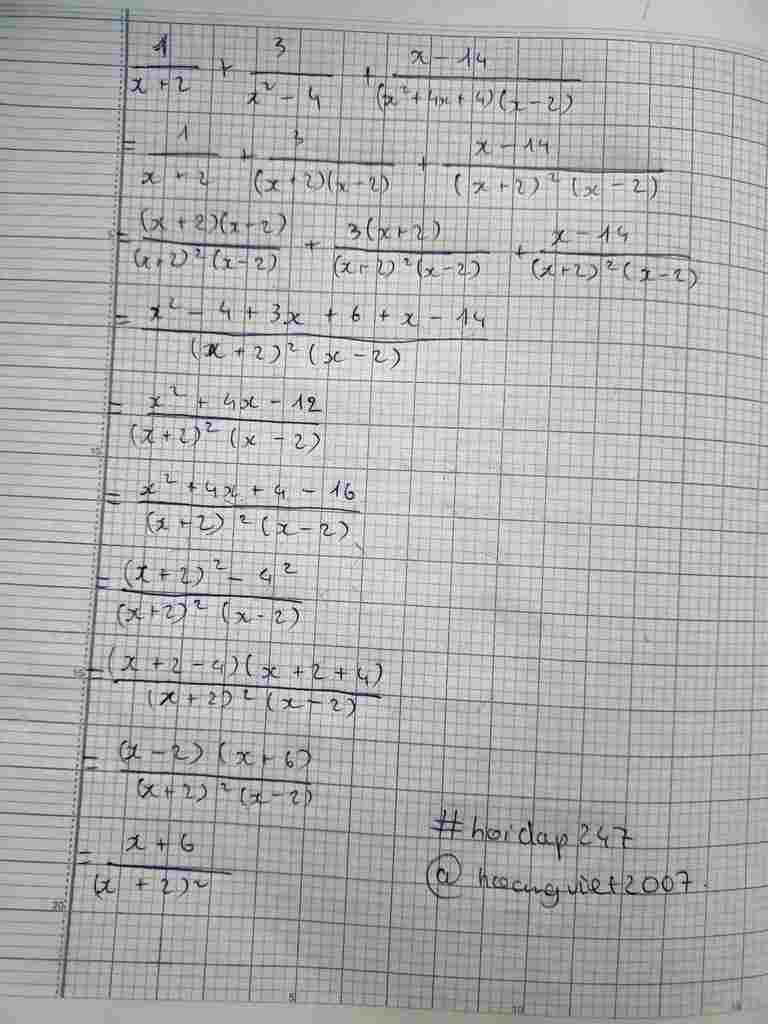 1/(x+2) + 3/(x² - 4) + (x - 14)/((x² + 4x + 4)(x - 2))
= 1/(x+2) + 3/((x+2)(x-2)) + (x - 14)/((x+2)²(x-2))
= ((x+2)(x-2))/((x+2)²(x-2)) + (3(x+2))/((x+2)²(x-2)) + (x - 14)/((x+2)²(x-2))
= (x² - 4 + 3x + 6 + x - 14)/((x+2)²(x-2))
= (x² + 4x - 12)/((x+2)²(x-2))
= (x² + 4x + 4 - 16)/((x+2)²(x-2))
= ((x+2)² - 4²)/((x+2)²(x-2))
= ((x+2-4)(x+2+4))/((x+2)²(x-2))
= ((x-2)(x+6))/((x+2)²(x-2))
= (x+6)/((x+2)²)
#hoidap247
@hoangviet2007.